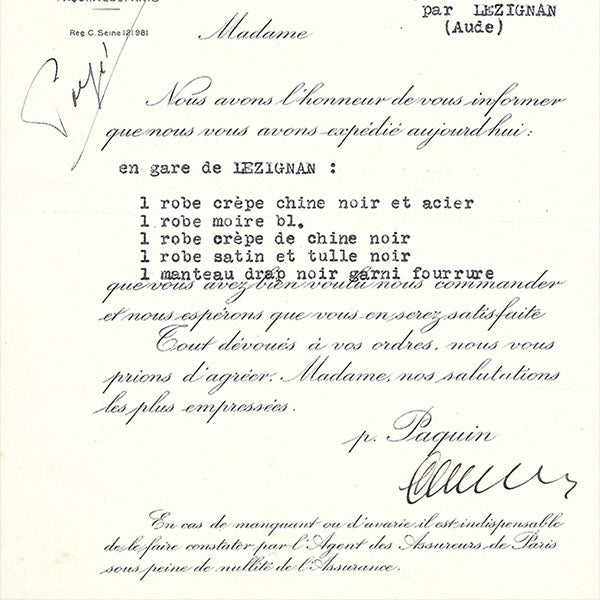 par LEZIGNAN
(Aude)
Reg. C. Seine 121.981
Madame
Nous avons l'honneur de vous informer
que nous vous avons expédié aujourd'hui :
en gare de LEZIGNAN :
1 robe crèpe chine noir et acier
1 robe moire bl.
1 robe crèpe de chine noir
1 robe satin et tulle noir
1 manteau drap noir garni fourrure
que vous avez bien voulu nous commander
et nous espérons que vous en serez satisfaite
Tout dévoués à vos ordres, nous vous
prions d'agréer, Madame, nos salutations
les plus empressées.
p. Paquin
En cas de manquant ou d'avarie il est indispensable
de le faire constater par l'Agent des Assureurs de Paris
sous peine de nullité de l'Assurance.